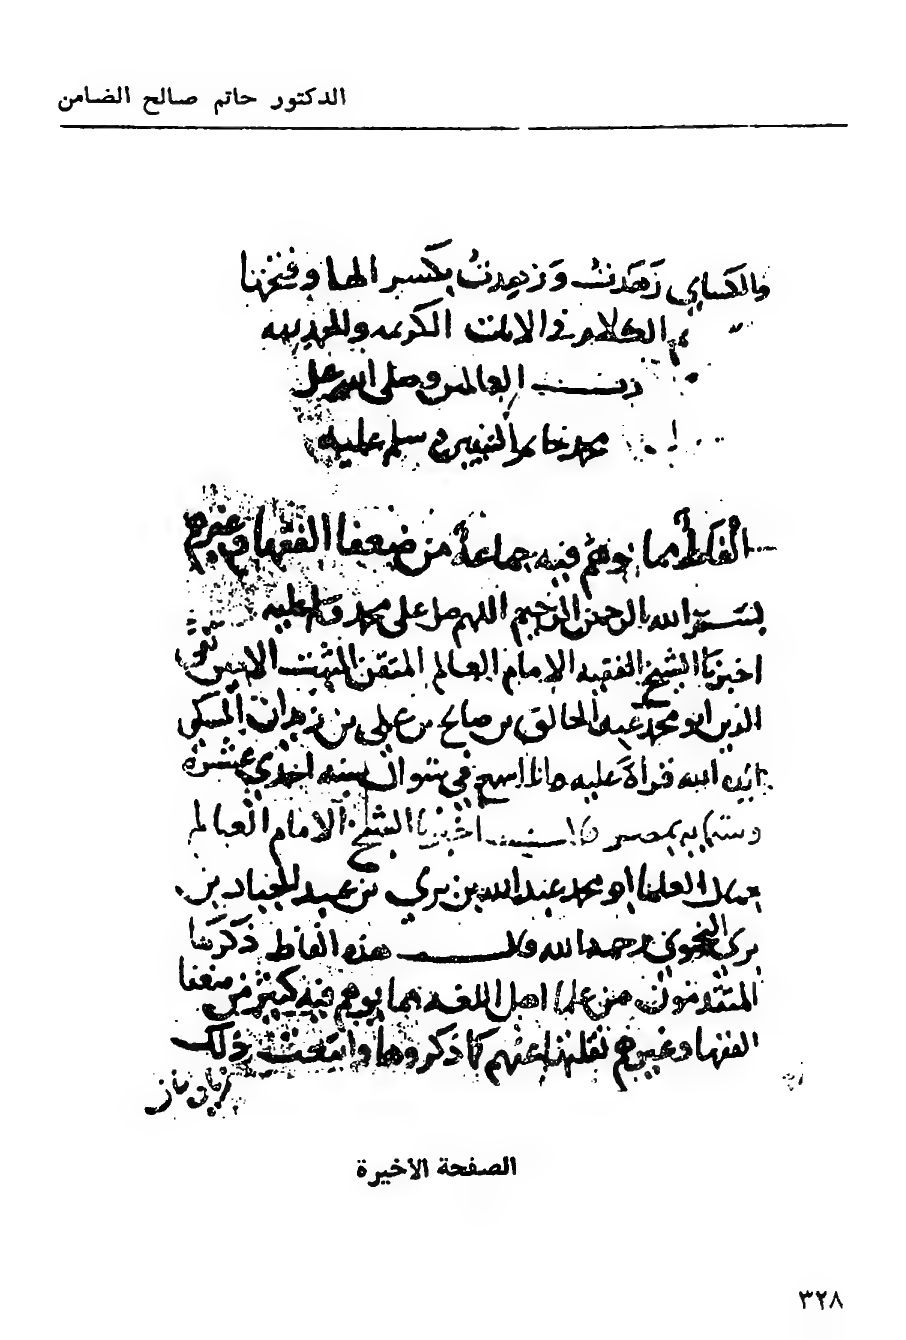 الدكتور حاتم صالح الضامن
والكساي زَهَدتُ وزهِدتُ بكسر الها وفتحها
الكلام في الايات الكريمه والحمد لله
رب العالمين وصلى الله على
محمد خاتم النبيين وسلم عليه
الفاظ مما يوهم فيه جماعة من ضعفا الفقها وغيرهم
بسم الله الرحمن الرحيم اللهم صل على محمد وسلم عليه
اخبرنا الشيخ الفقيه الامام العالم المتقن المثبت الامين تقي
الدين ابو محمد عبد الخالق بن صالح بن علي بن زهران المسكي
ايده الله قراة عليه وانا اسمع في شوال سنه احدي عشرة
وستمايه بمصر قال اخبرنا الشيخ الامام العالم
العلما ابو محمد عبد الله بن بري بن عبد الجبار بن
بري النحوي رحمه الله قال هذه الفاظ ذكرها
المتقدمون من علما اهل اللغه مما يوهم فيه كثير من ضعفا
الفقها وغيرهم نقلتها عنهم كما ذكروها واتبعت ذلك
الصفحة الأخيرة
٣٢٨